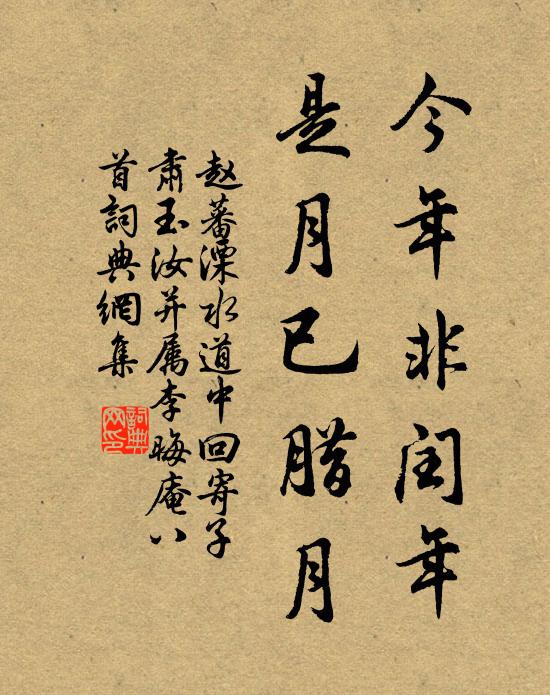 今年非闰年
是月已腊月
赵蕃溧水道中回寄子
肃玉汝并属李晦庵八
首詞典網集
詞典網印